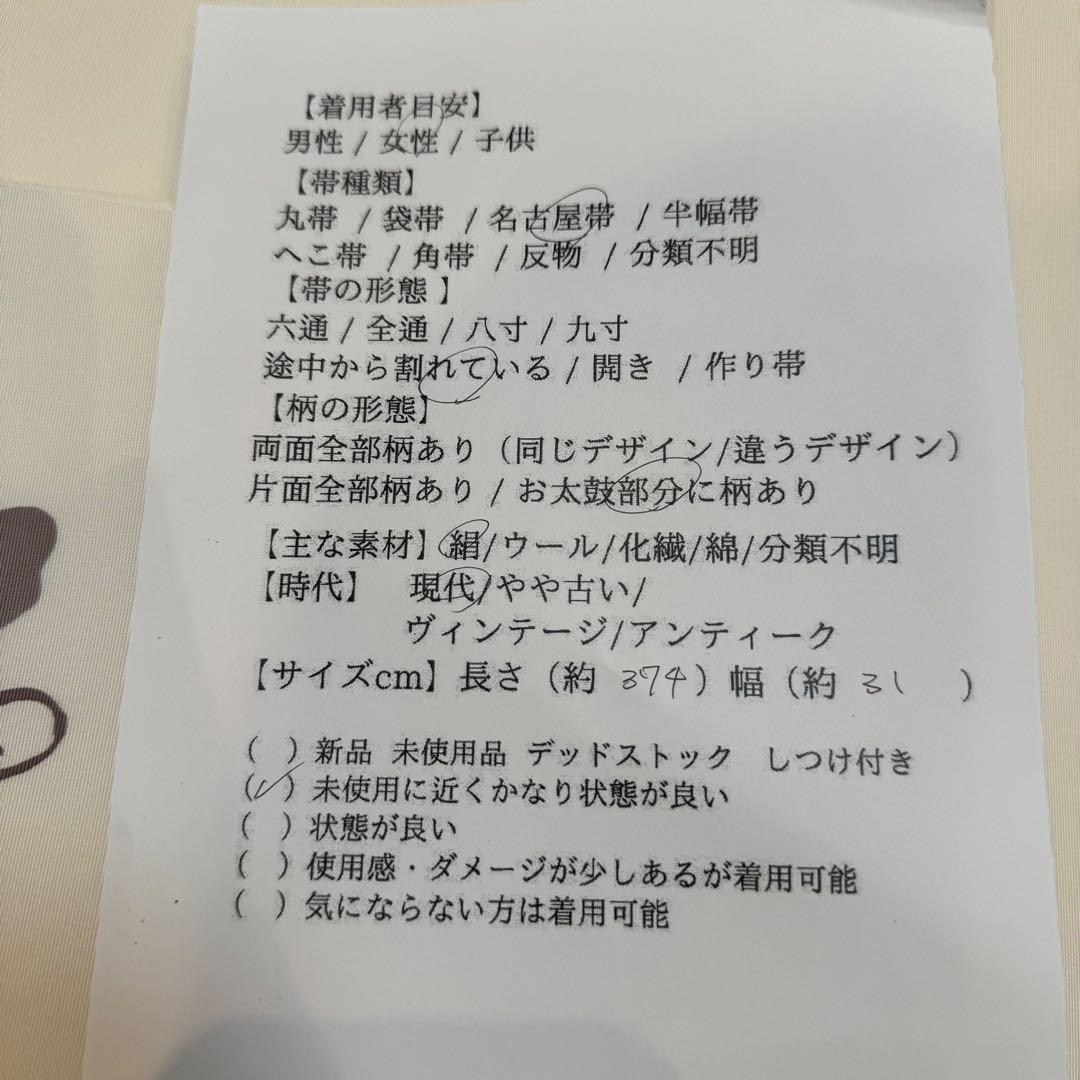 【着用者目安】
男性 / 女性 / 子供
【帯種類】
丸帯 / 袋帯 / 名古屋帯 / 半幅帯
へこ帯 / 角帯 / 反物 / 分類不明
【帯の形態 】
六通 / 全通 / 八寸 / 九寸
途中から割れている / 開き / 作り帯
【柄の形態】
両面全部柄あり（同じデザイン/違うデザイン）
片面全部柄あり / お太鼓部分に柄あり
【主な素材】絹/ウール/化繊/綿/分類不明
【時代】 現代/やや古い/
ヴィンテージ/アンティーク
【サイズcm】長さ（約 374）幅（約 31 ）
( ) 新品 未使用品 デッドストック しつけ付き
(✓) 未使用に近くかなり状態が良い
( ) 状態が良い
( ) 使用感・ダメージが少しあるが着用可能
( ) 気にならない方は着用可能